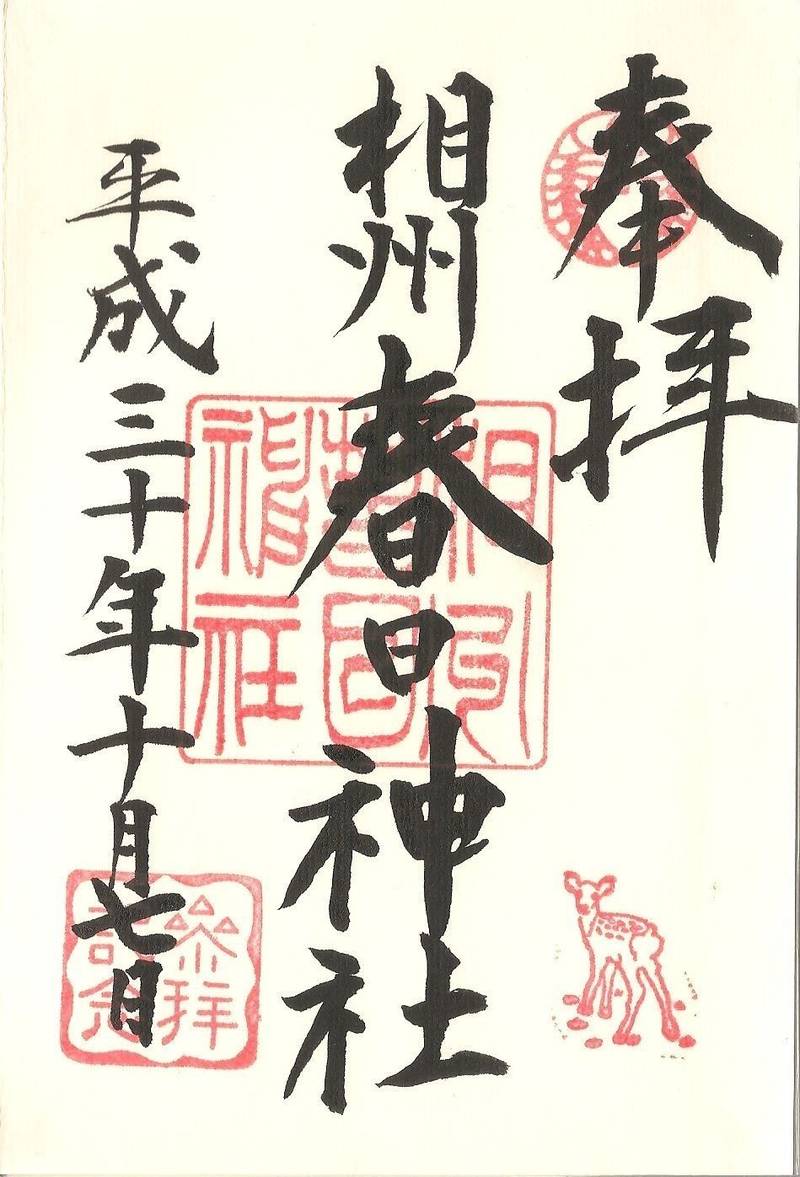 奉拝
相州春日神社
平成三十年十月七日
相州
春日
神社
參拝
記念